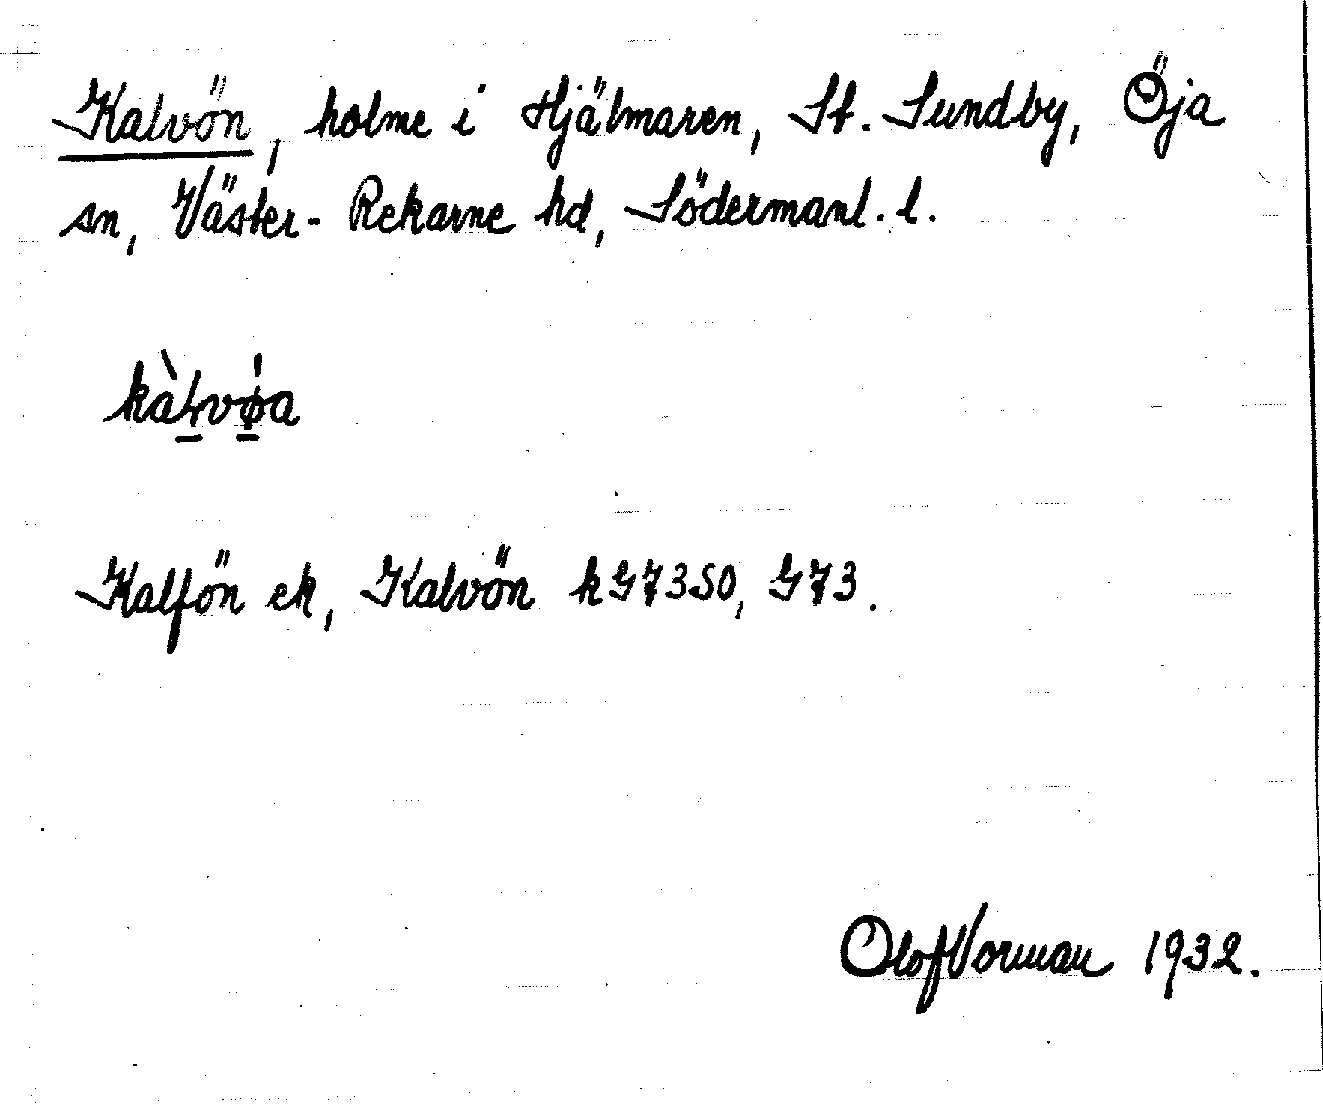 Kalvön, holme i Hjälmaren, St. Sundby, Öja
sn, Väster-Rekarne hd, Södermanl. l.
kàɬvø̍a
Kalfön ek, Kalvön kG7350, G73.
Olof Vorman 1932.